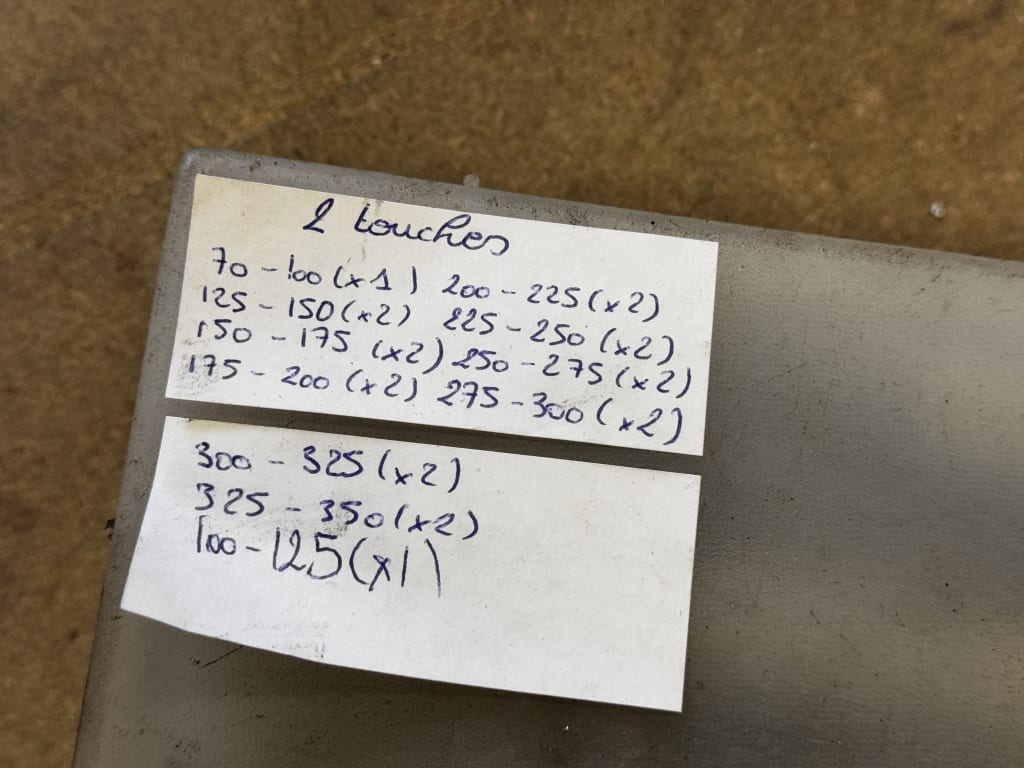 2 touches
70 - 100 (x1) 200 - 225 (x2)
125 - 150 (x2) 225 - 250 (x2)
150 - 175 (x2) 250 - 275 (x2)
175 - 200 (x2) 275 - 300 (x2)
300 - 325 (x2)
325 - 350 (x2)
100 - 125 (x1)